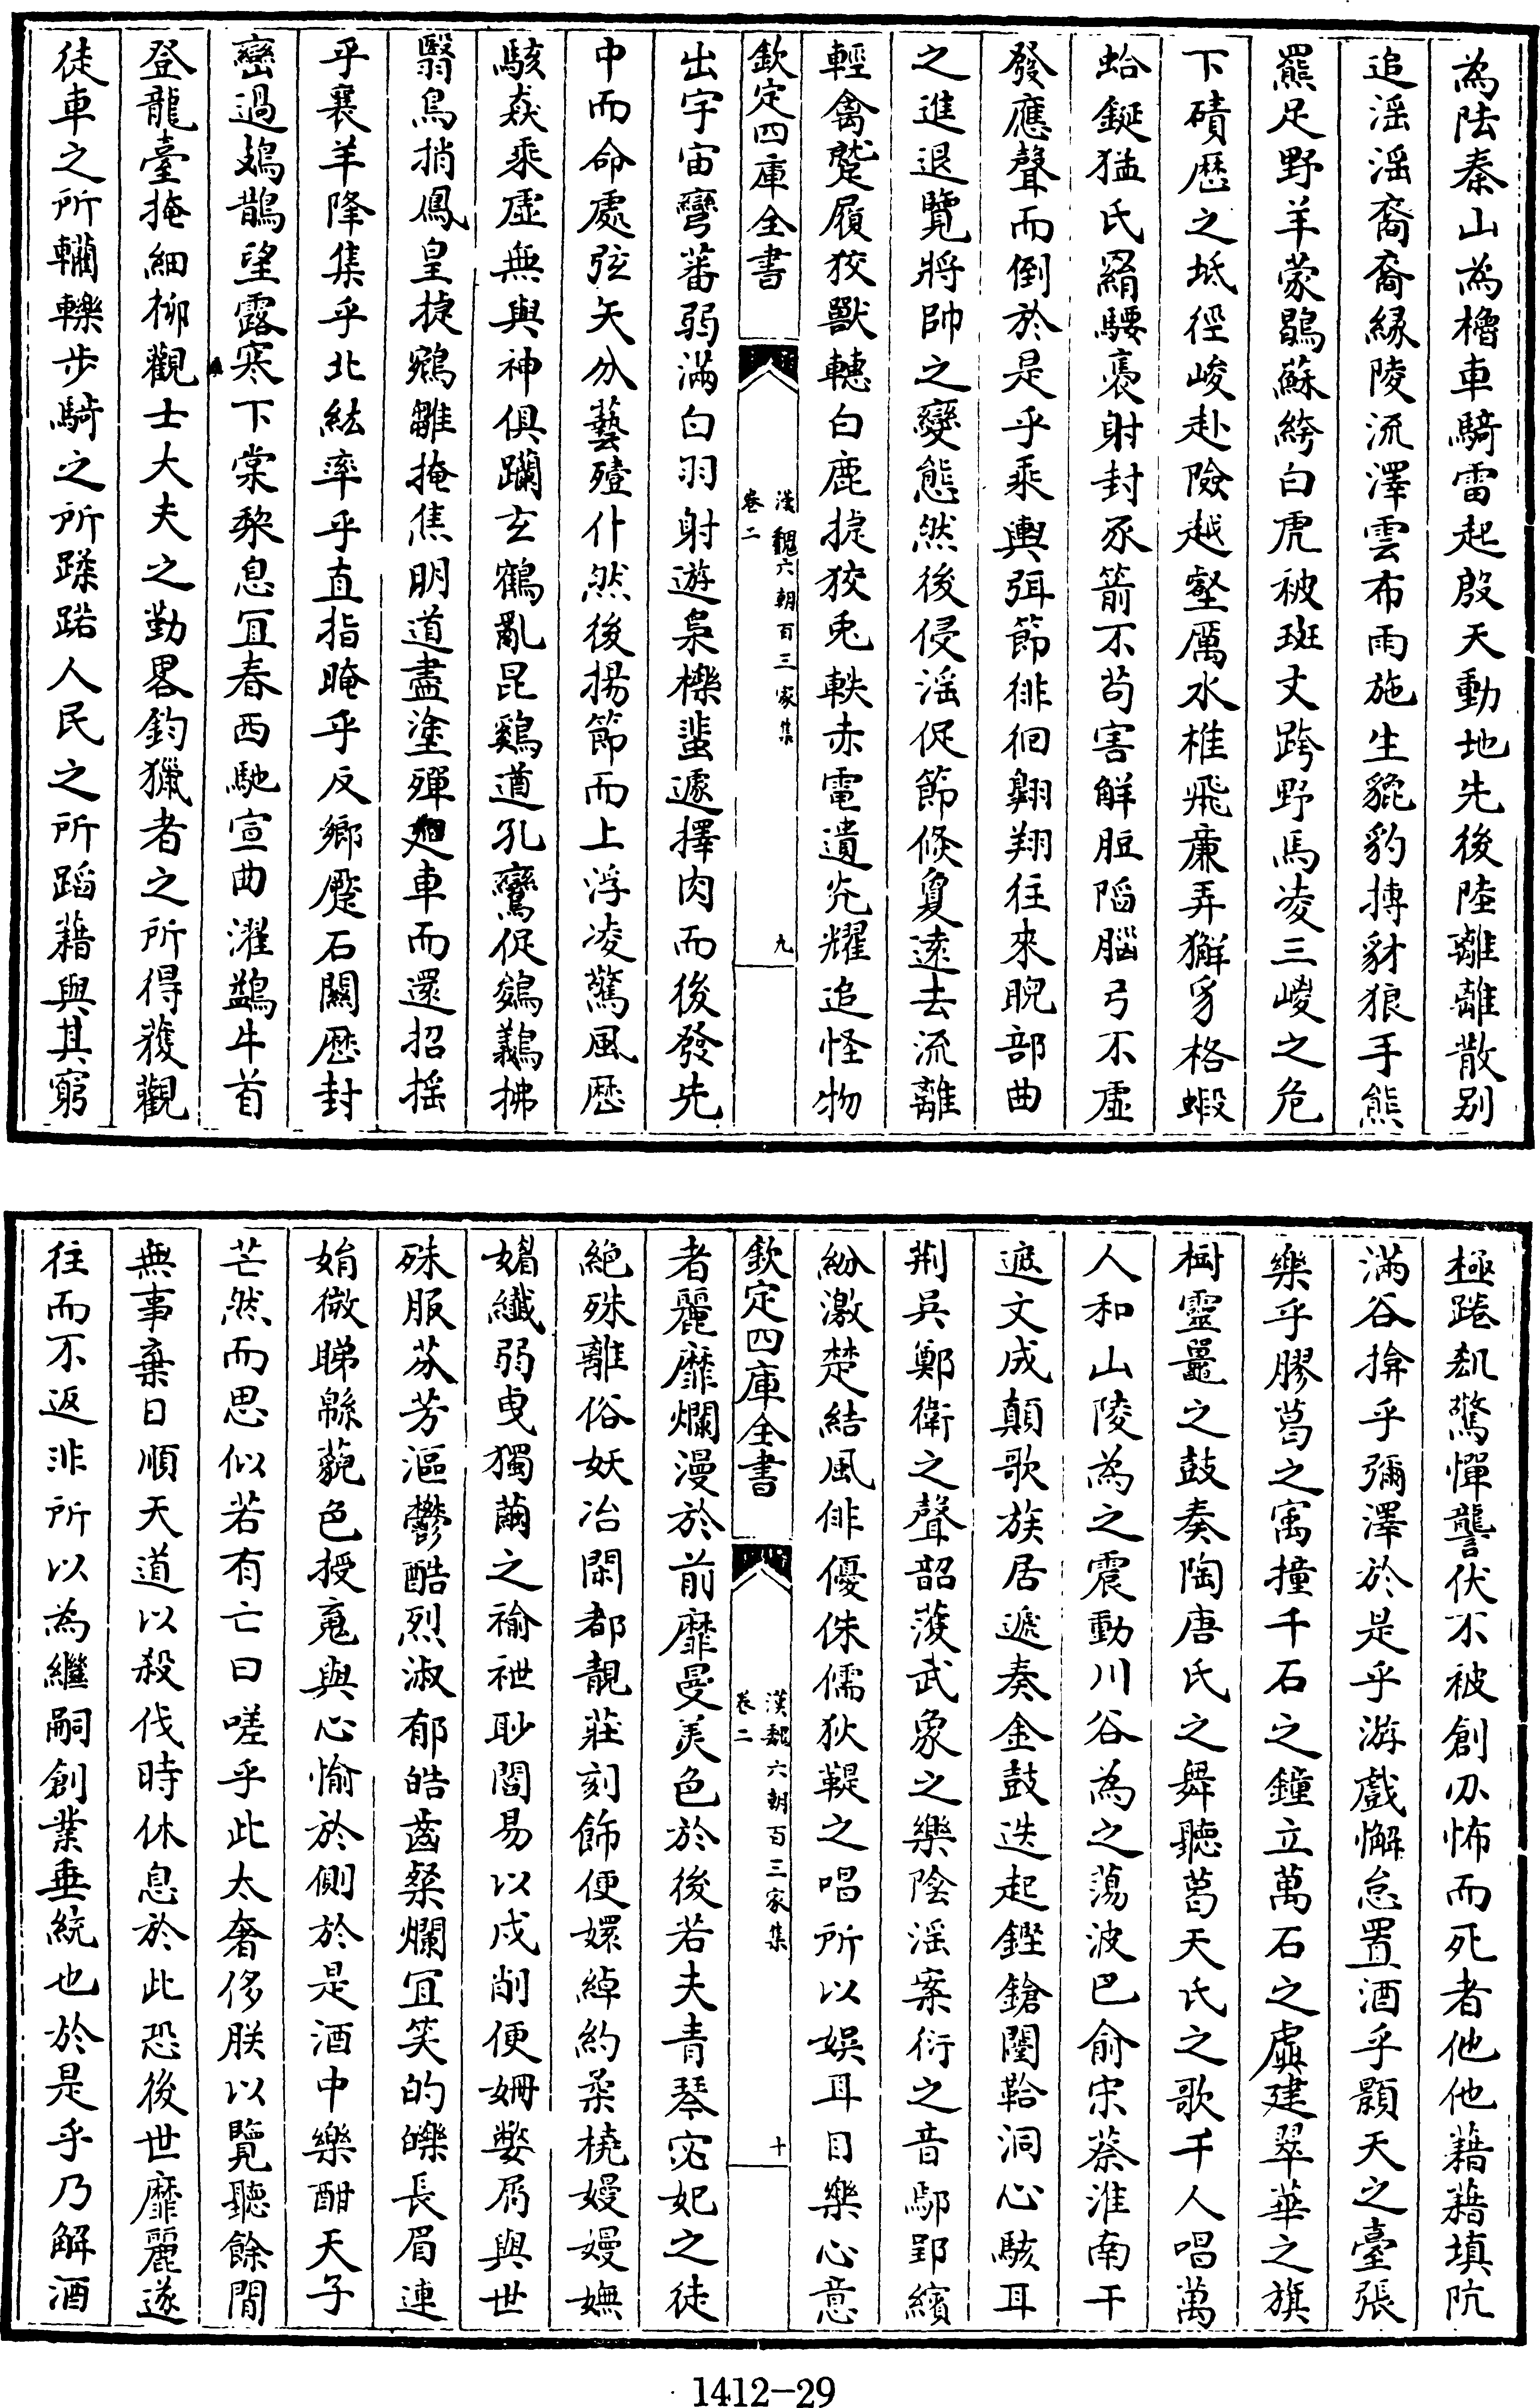 為阹秦山為櫓車騎雷起殷天動地先後陸離離散别
追淫淫裔裔緣陵流澤雲布雨施生貔豹搏豺狼手熊
羆足野羊蒙鶡蘇絝白虎被斑文跨野馬凌三嵏之危
下磧歴之坻徑峻赴險越壑厲水椎飛亷弄獬豸格蝦
蛤鋋猛氏羂騕褭射封豕箭不茍害解脰陷腦弓不虚
發應聲而倒於是乎乘輿弭節徘徊翺翔往來睨部曲
之進退覽將帥之變態然後侵淫促節倏夐遠去流離
輕禽蹵履狡獸轊白鹿捷狡兎軼赤電遺光耀追怪物
欽定四庫全書
漢魏六朝百三家集
卷二
九
出宇宙彎蕃弱滿白羽射遊梟櫟蜚遽擇肉而後發先
中而命處弦矢分藝殪仆然後揚節而上浮凌驚風歴
駭猋乘虚無與神俱躪玄鶴亂昆鷄遒孔鸞促鵕鸃拂
翳鳥捎鳳皇捷鵷雛掩焦明道盡塗殫廻車而還招揺
乎襄羊降集乎北紘率乎直指晻乎反鄉蹷石闗歴封
巒過鳷鵲望露寒下棠棃息宜春西馳宣曲濯鷁牛首
登龍臺掩細柳觀士大夫之勤畧鈞獵者之所得獲觀
徒車之所轥轢步騎之所蹂躤人民之所蹈藉與其窮
極踡㓭驚憚讋伏不被創刃怖而死者他他藉藉填阬
滿谷揜乎彌澤於是乎游戲懈怠置酒乎顥天之臺張
樂乎膠葛之㝢撞千石之鐘立萬石之虡建翠華之旗
樹靈鼉之鼓奏陶唐氏之舞聽葛天氏之歌千人唱萬
人和山陵為之震動川谷為之蕩波巴俞宋蔡淮南干
遮文成顛歌族居遞奏金鼓迭起鏗鎗闛鞈洞心駭耳
荆吳鄭衛之聲韶濩武象之樂陰淫案衍之音鄢郢繽
紛激楚結風俳優侏儒狄鞮之唱所以娱耳目樂心意
欽定四庫全書
漢魏六朝百三家集
卷二
十
者麗靡爛漫於前靡曼美色於後若夫青琴宓妃之徒
絶殊離俗妖冶閑都靚莊刻飾便嬛綽約柔橈嫚嫚嫵
媚纎弱曳獨繭之褕袣眇閻易以戍削便姍嫳屑與世
殊服芬芳漚鬱酷烈淑郁皓齒粲爛宜笑的皪長眉連
娟微睇緜藐色授䰟與心愉於側於是酒中樂酣天子
芒然而思似若有亡曰嗟乎此太奢侈朕以覽聽餘閒
無事棄日順天道以殺伐時休息於此恐後世靡麗遂
往而不返非所以為繼嗣創業垂統也於是乎乃解酒
1412-29